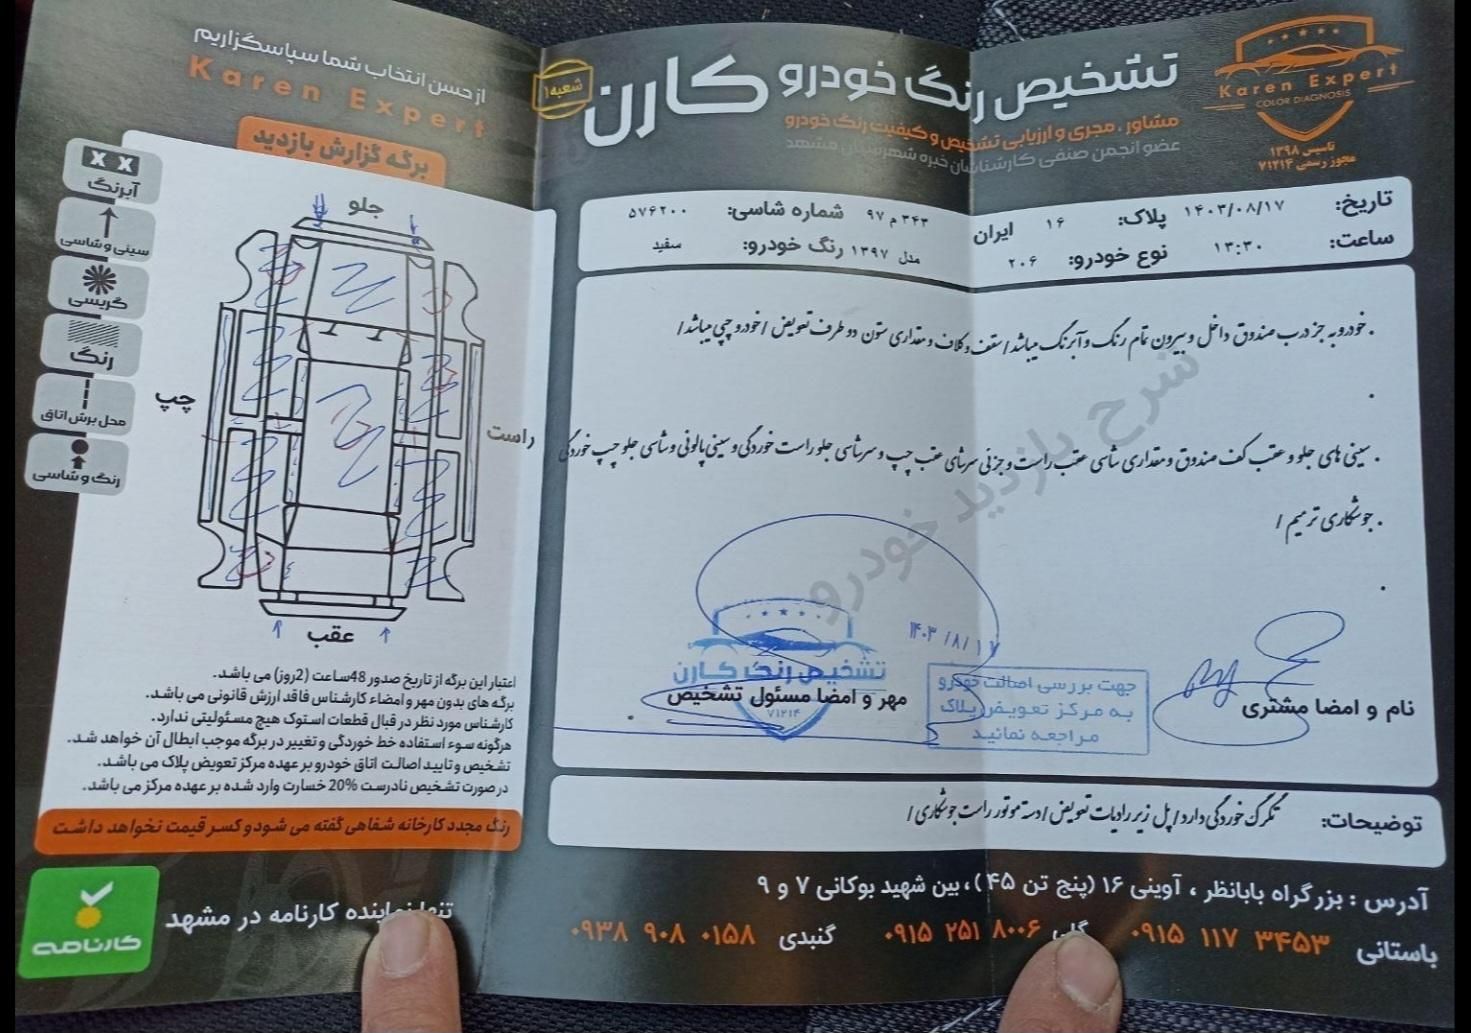 از حسن انتخاب شما سپاسگزاریم
Karen Expert
برگه گزارش بازدید
آبرنگ
سینی و شاسی
گریسی
رنگ
محل برش اتاق
رنگ و شاسی
جلو
چپ
راست
عقب
اعتبار این برگه از تاریخ صدور 48ساعت (2روز) می باشد.
برگه های بدون مهر و امضاء کارشناس فاقد ارزش قانونی می باشد.
کارشناس مورد نظر در قبال قطعات استوک هیچ مسئولیتی ندارد.
هرگونه سوء استفاده خط خوردگی و تغییر در برگه موجب ابطال آن خواهد شد.
تشخیص و تایید اصالت اتاق خودرو بر عهده مرکز تعویض پلاک می باشد.
در صورت تشخیص نادرست 20% خسارت وارد شده بر عهده مرکز می باشد.
رنگ مجدد کارخانه شفاهی گفته می شود و کسر قیمت نخواهد داشت
کارنامه
تنها نماینده کارنامه در مشهد
تشخیص رنگ خودرو کارن
شعبه ۱
مشاور ، مجری و ارزیابی تشخیص و کیفیت رنگ خودرو
عضو انجمن صنفی کارشناسان خبره شهرستان مشهد
Karen Expert
COLOR DIAGNOSIS
تاسیس ۱۳۹۸
مجوز رسمی ۷۱۲۱۴
تاریخ: ۱۴۰۳/۰۸/۱۷ پلاک: ۱۶ ایران ۳۴۳ م ۹۷ شماره شاسی: ۵۷۶۲۰۰
ساعت: ۱۳:۳۰ نوع خودرو: ۲۰۶ مدل ۱۳۹۷ رنگ خودرو: سفید
. خودرو به جز درب صندوق داخل و بیرون تمام رنگ و آبرنگ میباشد / سقف و کلاف و مقداری ستون دو طرف تعویض / خودرو چپی میباشد /
. سینی های جلو و عقب کف صندوق و مقداری شاسی عقب راست و جزئی سرشاسی عقب چپ و سرشاسی جلو راست خوردگی و سینی پالونی و شاسی جلو چپ خوردگی
. جوشکاری ترمیم /
شرح بازدید خودرو
۱۴۰۳/۸/۱۷
تشخیص رنگ کارن
۷۱۲۱۴
مهر و امضا مسئول تشخیص
جهت بررسی اصالت خودرو
به مرکز تعویض پلاک
مراجعه نمائید
نام و امضا مشتری
توضیحات: تگرگ خوردگی دارد / پل زیر رادیات تعویض / دسته موتور راست جوشکاری /
آدرس : بزرگراه بابانظر ، آوینی ۱۶ (پنج تن ۴۵)، بین شهید بوکانی ۷ و ۹
باستانی ۰۹۱۵ ۱۱۷ ۳۴۵۳ ۰۹۱۵ ۲۵۱ ۸۰۰۶ گنبدی ۰۹۳۸ ۹۰۸ ۰۱۵۸